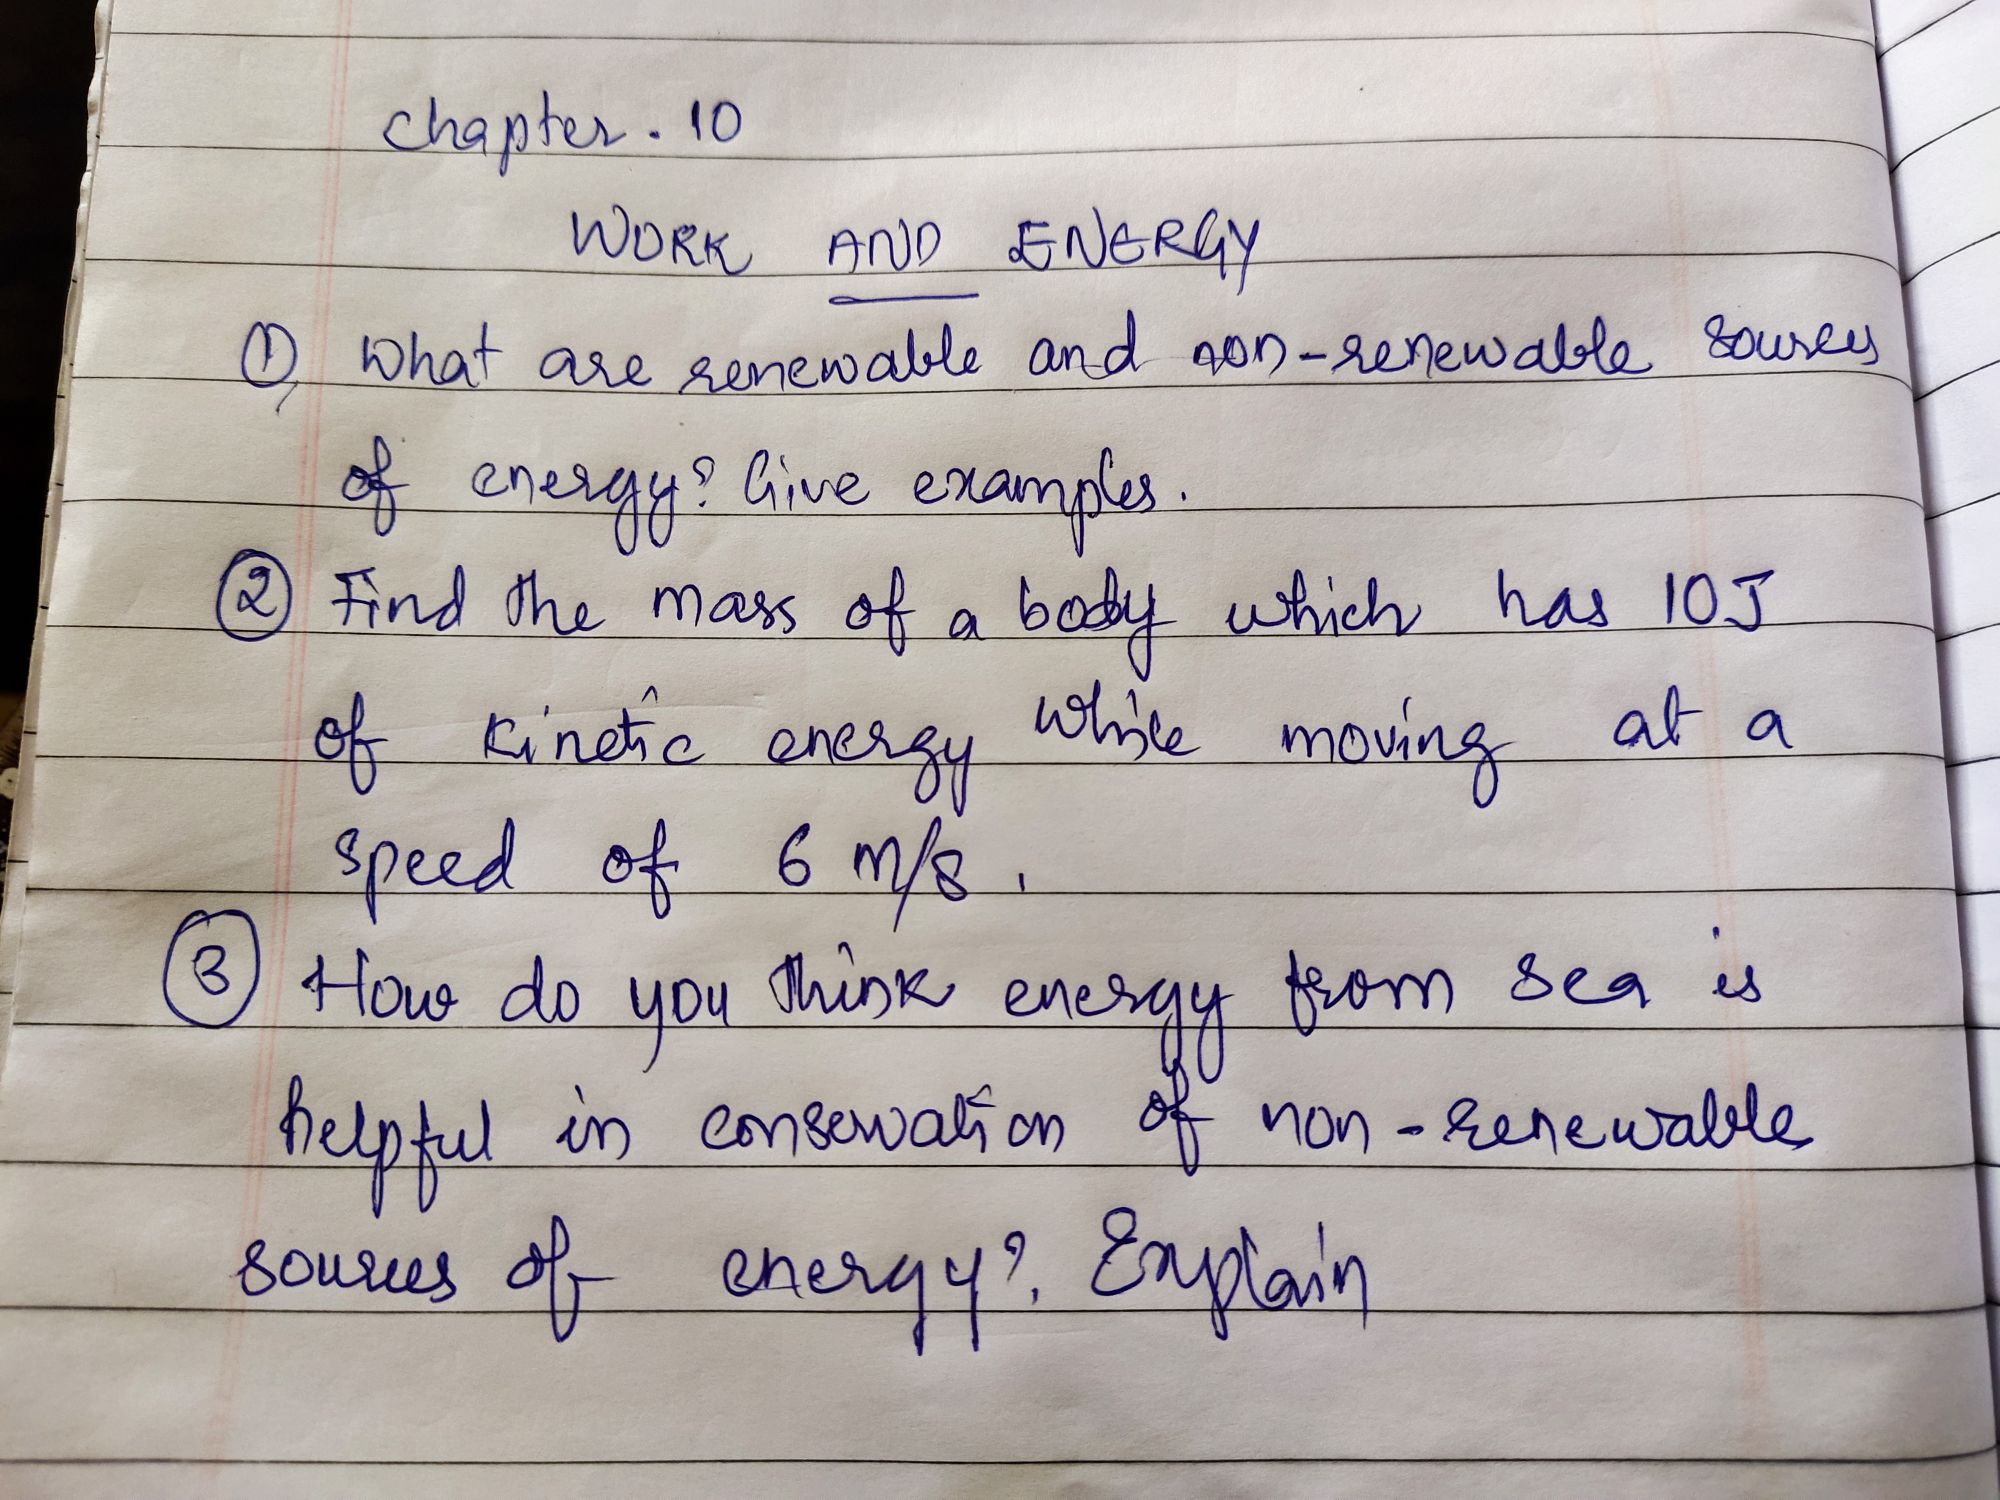 Chapter. 10
WORK AND ENERGY
1) What are renewable and non-renewable sources
of energy? Give examples.
2 Find the mass of a body which has 10J
of kinetic energy while moving at a
speed of 6 m/s.
3 How do you think energy from sea is
helpful in conservation of non-renewable
sources of energy?. Explain